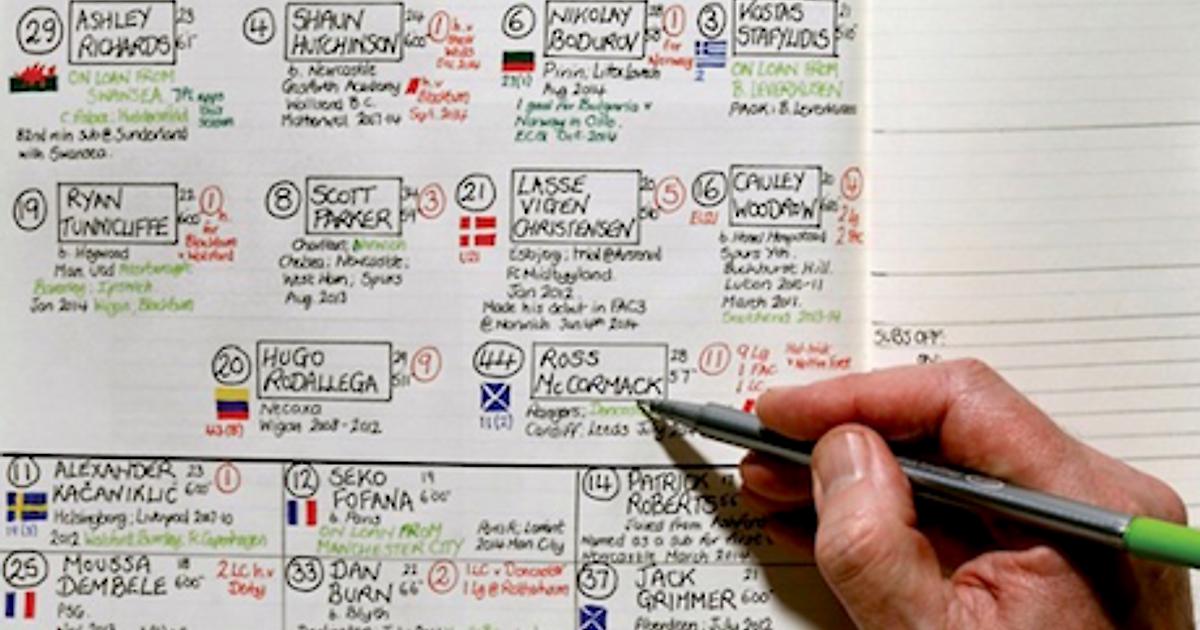 29 ASHLEY RICHARDS 23 6'1"
ON LOAN FROM
SWANSEA
82nd min sub @ Sunderland
with Swansea.
4 SHAUN HUTCHINSON 24 6'00" 1
b. Newcastle
Gosforth Academy
Wallsend B.C.
Motherwell 2007-14
6 NIKOLAY BODUROV 1 for Norway
23(1)
Pirin; Litex Lovech
Aug 2014
1 goal for Bulgaria v
Norway in Oslo
ECQ Oct 2014
3 KOSTAS STAFYLIDIS 21 5'10"
2
ON LOAN FROM
B. LEVERKUSEN
PAOK; B. Leverkusen
19 RYAN TUNNICLIFFE 22 6'00" 1
b. Heywood
Man Utd Peterborough
Barnsley; Ipswich
Jan 2014 Wigan, Blackburn
8 SCOTT PARKER 34 5'9" 3
Charlton; Norwich
Chelsea; Newcastle;
West Ham; Spurs
Aug 2013
21 LASSE VIGEN CHRISTENSEN 20 5'10" 5
U21
Esbjerg; trial @ Arsenal
FC Midtjylland
Jan 2012
Made his debut in FAC3
@ Norwich Jan 4th 2014
16 CAULEY WOODROW 20 6'00" 4
EU21
b. Hemel Hempstead
Spurs Yth.
Buckhurst Hill.
Luton 2010-11
March 2011.
Southend 2013-14
SUBS OFF:
20 HUGO RODALLEGA 29 5'11" 9
43(8)
Necaxa
Wigan 2008-2012
44 ROSS McCORMACK 28 5'7" 11
9 Lg
1 FAC
1 LC
11(2)
Rangers;
Cardiff; Leeds July
11 ALEXANDER KAČANIKLIĆ 23 6'00" 1
Helsingborg; Liverpool 2007-10
2012 Watford; Burnley; FC Copenhagen
12 SEKO FOFANA 19 6'00"
b. Paris
ON LOAN FROM
MANCHESTER CITY
Paris F.; Lorient
2014 Man City
14 PATRICK ROBERTS
Named as a sub for
Newcastle March 2014
25 MOUSSA DEMBELE 18 6'00"
2 LC h.v
Derby
PSG.
33 DAN BURN 22 6'6" 2
1 LC v Doncaster
1 Lg @ Rotherham
b. Blyth
37 JACK GRIMMER 21 6'00"
Aberdeen; July 2012